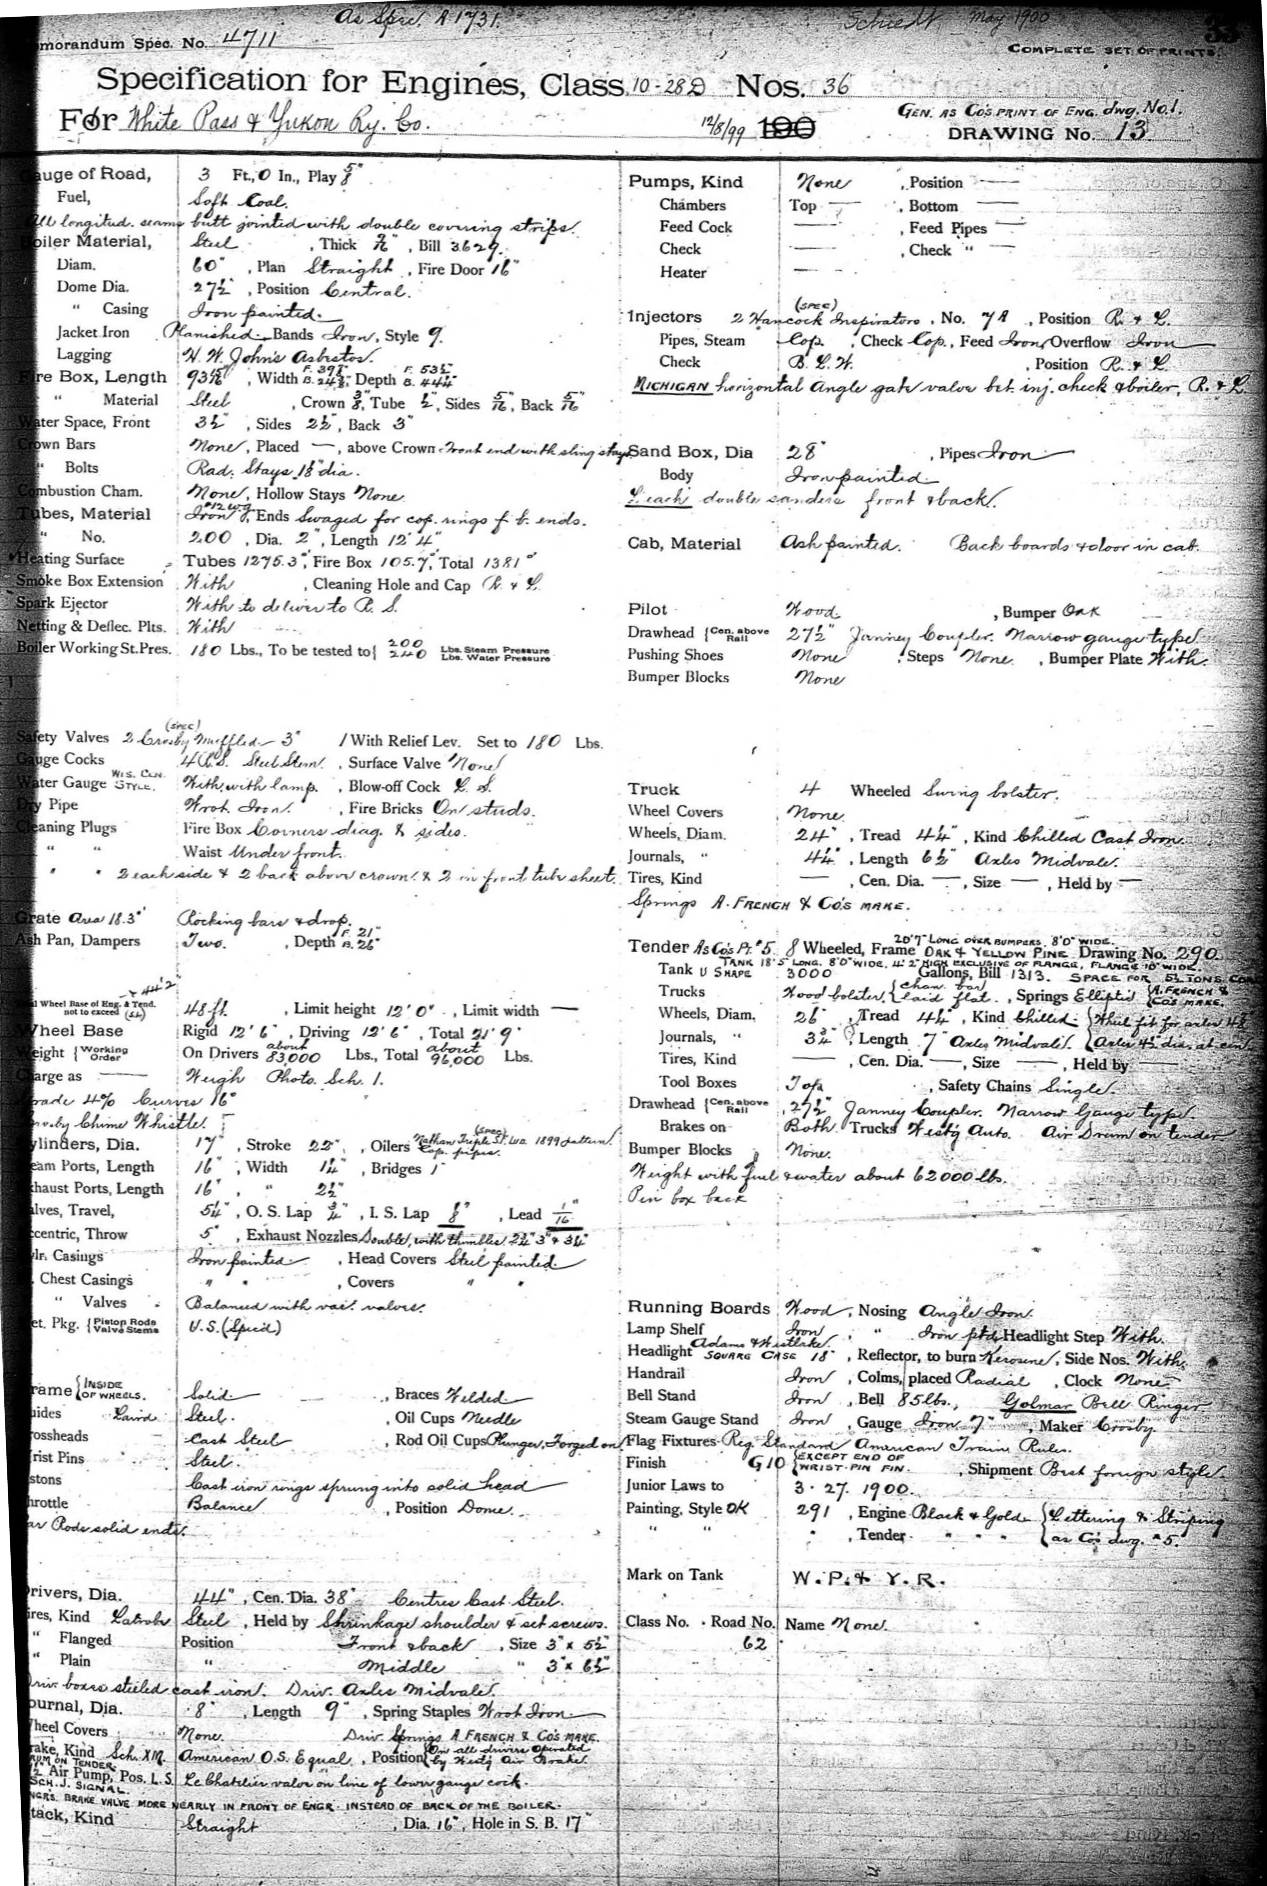 As Spec. R 1731.
May 1900
33
Memorandum Spec. No. 4711
COMPLETE SET OF PRINTS.
Specification for Engines, Class 10-28 D Nos. 36
GEN. AS CO'S PRINT OF ENG. dwg. No. 1.
For White Pass & Yukon Ry. Co. 12/8/99 190 DRAWING No. 13
Gauge of Road, 3 Ft., 0 In., Play 5/8"
Fuel, Soft Coal.
All longitud. seams butt jointed with double covering strips.
Boiler Material, Steel, Thick 9/16", Bill 3629.
Diam. 60", Plan Straight, Fire Door 16"
Dome Dia. 27½", Position Central.
" Casing Iron painted.
Jacket Iron Planished. Bands Iron, Style 9.
Lagging H. W. John's Asbestos.
Fire Box, Length 93 15/16", Width F. 39 7/8" B. 24 3/8", Depth F. 53½" B. 44¼"
" Material Steel, Crown 3/8", Tube ½", Sides 5/16", Back 5/16"
Water Space, Front 3½", Sides 2½", Back 3"
Crown Bars None, Placed —, above Crown Front end with sling stays
" Bolts Rad. Stays 1 1/8" dia.
Combustion Cham. None, Hollow Stays None.
Tubes, Material Iron #12 W.G., Ends Swaged for cop. rings f. b. ends.
" No. 200, Dia. 2", Length 12' 4"
Heating Surface Tubes 1275.3, Fire Box 105.7, Total 1381
Smoke Box Extension With, Cleaning Hole and Cap R. & L.
Spark Ejector With to deliver to R. S.
Netting & Deflec. Plts. With
Boiler Working St. Pres. 180 Lbs., To be tested to { 200 Lbs. Steam Pressure 240 Lbs. Water Pressure
Safety Valves 2 Crosby Muffled 3" (SPEC) 1 With Relief Lev. Set to 180 Lbs.
Gauge Cocks 4 C.S. Steel Stem, Surface Valve None
Water Gauge WIS. CEN. STYLE. With, with lamp, Blow-off Cock L. S.
Dry Pipe Wrot Iron, Fire Bricks On studs.
Cleaning Plugs Fire Box Corners diag. & sides.
" " Waist Under front.
" " 2 each side & 2 back above crown & 2 in front tube sheet.
Grate Area 18.3 Rocking bars & drop.
Ash Pan, Dampers Two., Depth F. 21" B. 26"
44' 2"
Total Wheel Base of Eng. & Tend. not to exceed 48 ft., Limit height 12' 0", Limit width —
Wheel Base Rigid 12' 6", Driving 12' 6", Total 21' 9"
Weight { Working Order On Drivers about 83,000 Lbs., Total about 96,000 Lbs.
Charge as —— Weigh Photo. Sch. 1.
Grade 4% Curves 16°
Crosby Chime Whistle.
Cylinders, Dia. 17", Stroke 22", Oilers Nathan Triple St. (SPEC) 1899 pattern. Cop. pipes.
Steam Ports, Length 16", Width 1¼", Bridges 1"
Exhaust Ports, Length 16", " 2½"
Valves, Travel, 5¼", O. S. Lap ¾", I. S. Lap 1/8", Lead 1/16"
Eccentric, Throw 5", Exhaust Nozzles Double, with thimbles 2¾" 3" & 3¼"
Cylr. Casings Iron painted, Head Covers Steel painted.
St. Chest Casings " ", Covers " "
" Valves Balanced with vac. valves.
Met. Pkg. { Piston Rods Valve Stems U.S. (Spec'd)
Frame { INSIDE OF WHEELS. Solid, Braces Welded
Guides Laird Steel., Oil Cups Needle
Crossheads Cast Steel, Rod Oil Cups Plunger, Forged on
Wrist Pins Steel.
Pistons Cast iron rings sprung into solid head
Throttle Balance, Position Dome.
Par Rods solid ends.
Drivers, Dia. 44", Cen. Dia. 38" Centres Cast Steel.
Tires, Kind Latrobe Steel, Held by Shrinkage shoulder & set screws.
" Flanged Position Front & back, Size 3" x 5½"
" Plain " Middle " 3" x 6½"
Driv. boxes steeled cast iron. Driv. Axles Midvale.
Journal, Dia. 8", Length 9", Spring Staples Wrot Iron
Wheel Covers None. Driv. Springs A. FRENCH & CO'S MAKE.
Brake, Kind Sch. XM. American O.S. Equal, Position { On all drivers operated by Westg Air Brake.
DRUM ON TENDER.
9½ Air Pump, Pos. L.S. Le Chatelier valve on line of lower gauge cock.
SCH. J. SIGNAL.
ENGR'S. BRAKE VALVE MORE NEARLY IN FRONT OF ENGR. INSTEAD OF BACK OF THE BOILER.
Stack, Kind Straight, Dia. 16", Hole in S. B. 17"
Pumps, Kind None, Position —
Chambers Top —, Bottom —
Feed Cock —, Feed Pipes —
Check —, Check " —
Heater —
Injectors 2 Hancock Inspirators (SPEC), No. 7 A, Position R. & L.
Pipes, Steam Cop., Check Cop., Feed Iron, Overflow Iron
Check B. L. W., Position R. & L.
MICHIGAN horizontal Angle gate valve bet. inj. check & boiler, R. & L.
Sand Box, Dia 28", Pipes Iron
Body Iron painted
Leach double sanders front & back.
Cab, Material Ash painted. Back boards & door in cab.
Pilot Wood, Bumper Oak
Drawhead { Cen. above Rail 27½" Janney Coupler. Narrow gauge type
Pushing Shoes None, Steps None., Bumper Plate With.
Bumper Blocks None
Truck 4 Wheeled Swing bolster.
Wheel Covers None.
Wheels, Diam. 24", Tread 4¼", Kind Chilled Cast Iron.
Journals, " 4¼", Length 6½" Axles Midvale.
Tires, Kind —, Cen. Dia. —, Size —, Held by —
Springs A. FRENCH & CO'S MAKE.
Tender As Co's Pt. #5. 8 Wheeled, Frame 20' 7" LONG OVER BUMPERS. 8' 0" WIDE. OAK & YELLOW PINE Drawing No. 290
TANK 18' 5" LONG. 8' 0" WIDE, 4' 2" HIGH EXCLUSIVE OF FLANGE, FLANGE 10" WIDE.
Tank U SHAPE 3000 Gallons, Bill 1313. SPACE FOR 5½ TONS COAL
Trucks Wood bolster, { chan. bar laid flat., Springs Elliptic { A. FRENCH & CO'S MAKE.
Wheels, Diam. 26", Tread 4¼", Kind Chilled { Wheel fit for axles 4 7/8"
Journals, " 3¾", Length 7" Axles Midvale. { Axles 4¼" dia. at cen.
Tires, Kind —, Cen. Dia. —, Size —, Held by —
Tool Boxes Top, Safety Chains Single.
Drawhead { Cen. above Rail 27½" Janney Coupler. Narrow Gauge type.
Brakes on Both Trucks Westg Auto. Air Drum on tender
Bumper Blocks None.
Weight with fuel & water about 62000 lbs.
Pin box back
Running Boards Wood, Nosing Angle Iron.
Lamp Shelf Iron, " Iron ptd, Headlight Step With.
Headlight Adams & Westlake. SQUARE CASE 18", Reflector, to burn Kerosene, Side Nos. With.
Handrail Iron, Colms, placed Radial, Clock None
Bell Stand Iron, Bell 85 lbs., Golmar Bell Ringer
Steam Gauge Stand Iron, Gauge Iron 7", Maker Crosby
Flag Fixtures Reg. Standard American Train Rules.
Finish G10 { EXCEPT END OF WRIST-PIN FIN., Shipment Best foreign style.
Junior Laws to 3. 27. 1900.
Painting, Style OK 291, Engine Black & Gold { Lettering & Striping
" " ", Tender " " " { as Co's dwg. #5.
Mark on Tank W. P. & Y. R.
Class No. Road No. Name None.
62